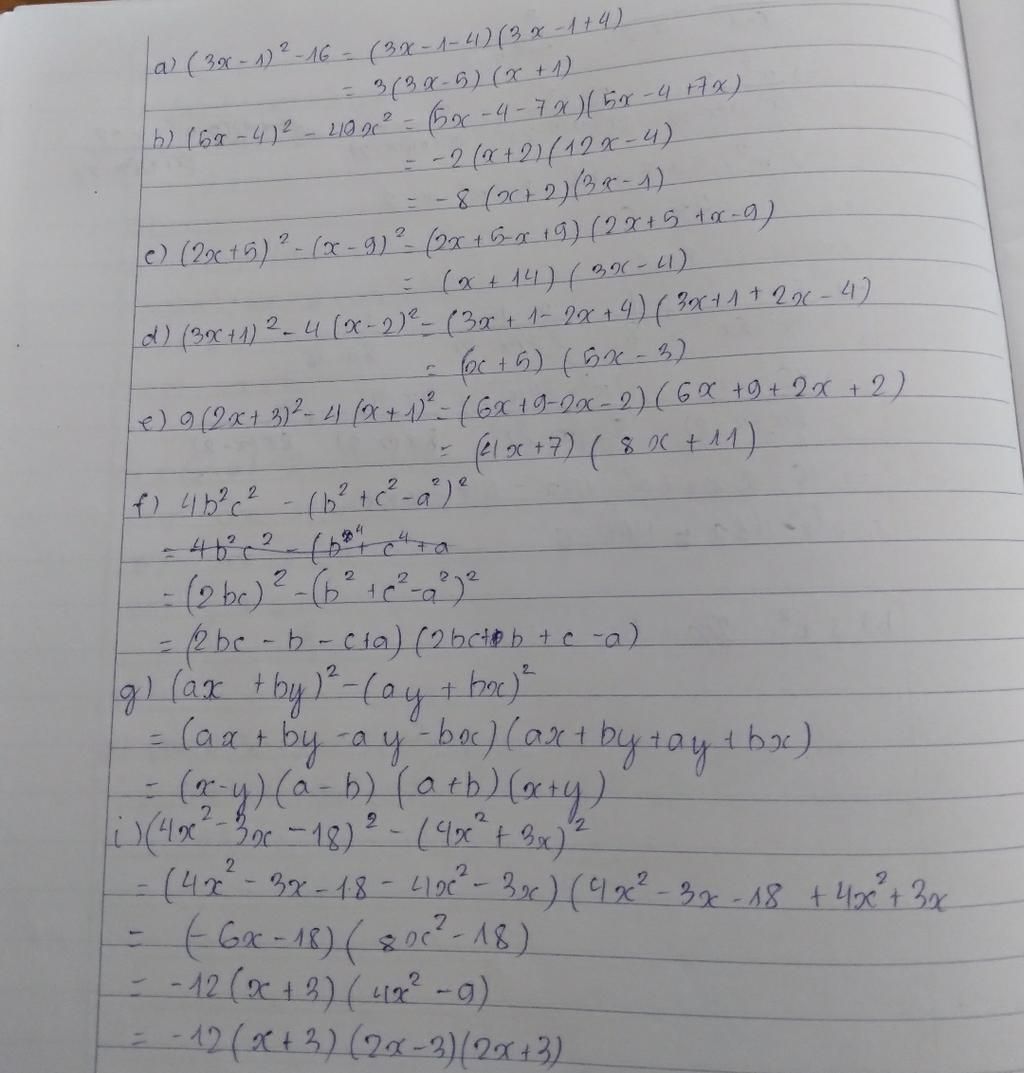 a) (3x-1)² -16 = (3x-1-4)(3x-1+4)
= 3(3x-5)(x+1)
b) (5x-4)² - 49x² = (5x-4-7x)(5x-4+7x)
= -2(x+2)(12x-4)
= -8(x+2)(3x-1)
c) (2x+5)² - (x-9)² = (2x+5-x+9)(2x+5+x-9)
= (x+14)(3x-4)
d) (3x+1)² - 4(x-2)² = (3x+1-2x+4)(3x+1+2x-4)
= (x+5)(5x-3)
e) 9(2x+3)² - 4(x+1)² = (6x+9-2x-2)(6x+9+2x+2)
= (4x+7)(8x+11)
f) 4b²c² - (b²+c²-a²)²
= 4b²c² - (b⁴+c⁴+a
= (2bc)² - (b²+c²-a²)²
= (2bc-b-c+a)(2bc+b+c-a)
g) (ax+by)² - (ay+bx)²
= (ax+by-ay-bx)(ax+by+ay+bx)
= (x-y)(a-b)(a+b)(x+y)
i) (4x²-3x-18)² - (4x²+3x)²
= (4x²-3x-18-4x²-3x)(4x²-3x-18+4x²+3x
= (-6x-18)(8x²-18)
= -12(x+3)(4x²-9)
= -12(x+3)(2x-3)(2x+3)